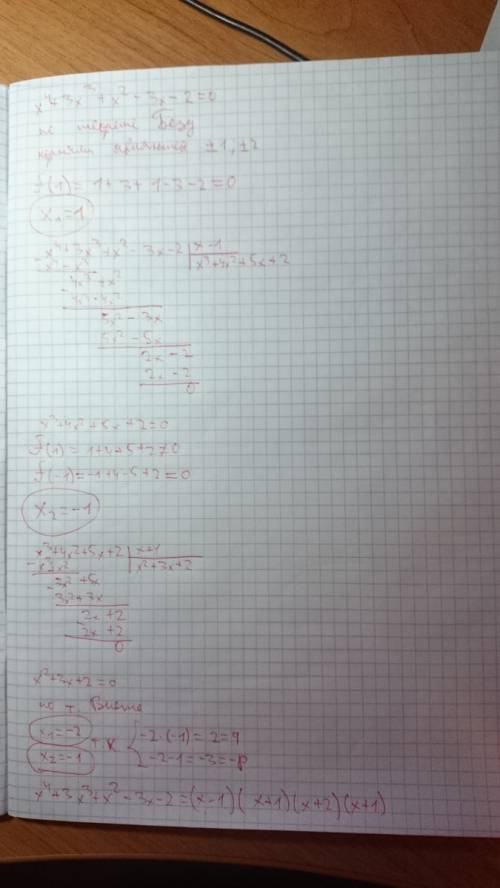 x⁴+3x³+x²-3x-2=0
по теореме Безу
корнями ±1, ±2
f(1)=1+3+1-3-2=0
x₁=1
x⁴+3x³+x²-3x-2 | x-1
- x⁴-x³ | x³+4x²+5x+2
4x³+x²
- 4x³-4x²
5x²-3x
5x²-5x
2x-2
2x-2
0
x³+4x²+5x+2=0
f(1)=1+4+5+2≠0
f(-1)=-1+4-5+2=0
x₂=-1
x³+4x²+5x+2 | x+1
- x³+x² | x²+3x+2
3x²+5x
- 3x²+3x
2x+2
- 2x+2
0
x²+3x+2=0
по т Виета
x₁=-2
x₂=-1
т.к { -2·(-1)=2=q
-2-1=-3=-p
x⁴+3x³+x²-3x-2=(x-1)(x+1)(x+2)(x+1)